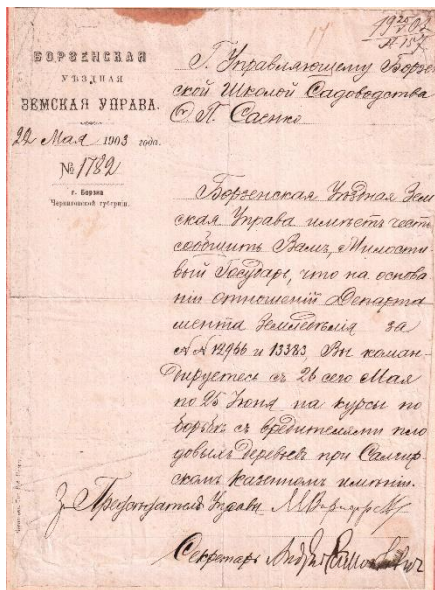 БОРЗЕНСКАЯ
УѢЗДНАЯ
ЗЕМСКАЯ УПРАВА.
22 Мая 1903 года.
№ 1782
г. Борзна
Черниговской губерніи.
Г. Управляющему Борзен
ской Школой Садоводства
П. Саенко
Борзенская Уѣздная Зем
ская Управа имѣетъ честь
сообщить Вамъ, Милости
вый Государь, что на основа
ніи отношеній Департа
мента Земледѣлія за
№№ 12966 и 13383, Вы коман-
дируетесь съ 26 сего Мая
по 25 Іюня на курсы по
борьбѣ съ вредителями пло
довыхъ деревьевъ при Салгир
скомъ Казенномъ имѣніи.
За Предсѣдателя Управы
Секретарь